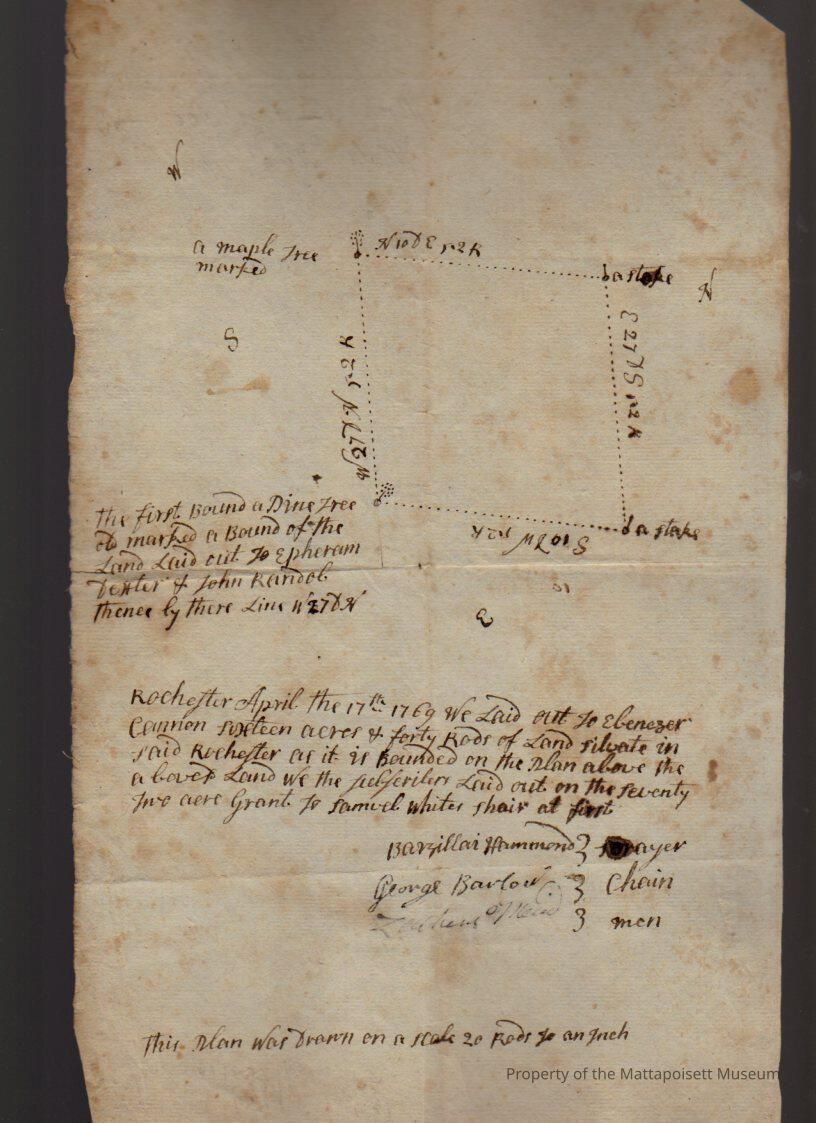 W
a maple Tree
marked
N 10 D E 52 R
a stake
N
S
W 27 D N 52 R
E 27 D S 52 R
the first Bound a Pine Tree
old marked a Bound of the
Land Laid out To Epheram
Dexter & John Randol
thence by there Line W 27 D N
a stake
S 10 D W 52 R
10
E
Rochester April the 17th 1769 We Laid out To Ebenezer
Cannon sixteen acres & forty Rods of Land situate in
said Rochester as it is Bounded on the Plan above the
above Land We the subscribers Laid out on the seventy
Two acre Grant To Samuel Whites shair at first
Barzillai Hammond }
George Barlow } Chain
} men
This Plan Was Drawn on a scale 20 Rods To an Inch
Property of the Mattapoisett Museum